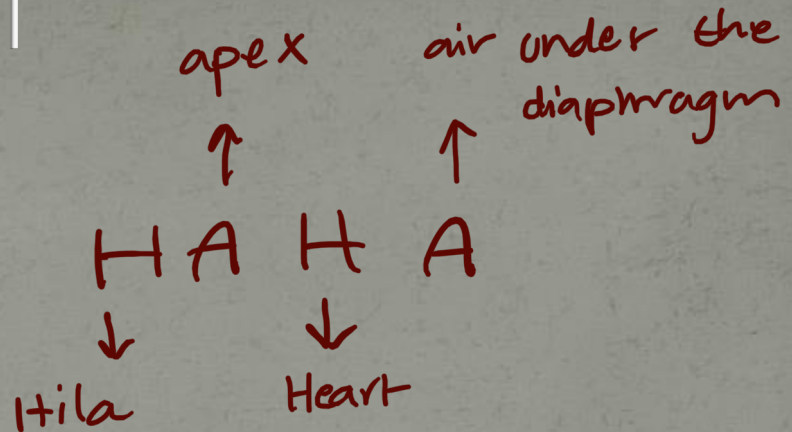 apex
air under the
diaphragm
H A H A
Hila
Heart